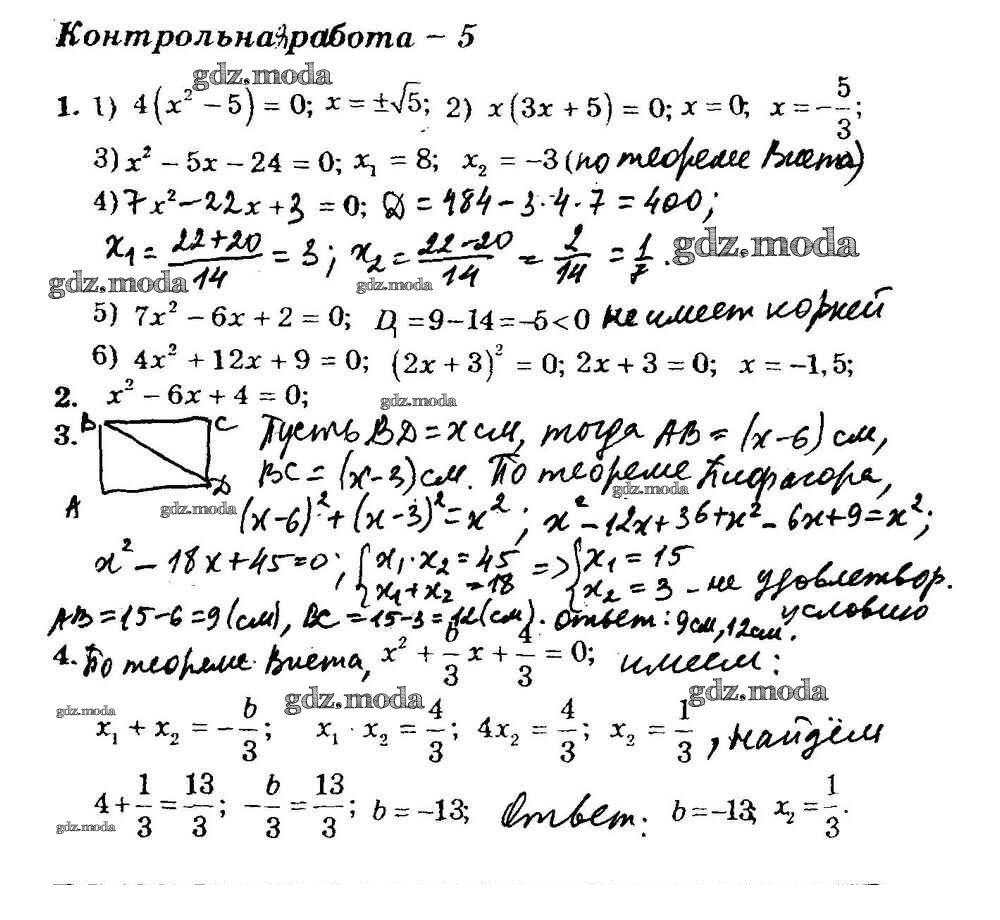 Контрольная работа – 5
gdz.moda
1. 1) 4(x² − 5) = 0; x = ±√5; 2) x(3x + 5) = 0; x = 0; x = −5/3;
3) x² − 5x − 24 = 0; x₁ = 8; x₂ = −3 (по теореме Виета)
4) 7x² − 22x + 3 = 0; D = 484 − 3·4·7 = 400;
x₁ = (22+20)/14 = 3; x₂ = (22−20)/14 = 2/14 = 1/7. gdz.moda
gdz.moda gdz.moda
5) 7x² − 6x + 2 = 0; Д = 9 − 14 = −5 < 0 не имеет корней
6) 4x² + 12x + 9 = 0; (2x + 3)² = 0; 2x + 3 = 0; x = −1,5;
2. x² − 6x + 4 = 0; gdz.moda
3. B C Пусть BD = x см, тогда AB = (x−6) см,
A D BC = (x−3) см. По теореме Пифагора,
gdz.moda gdz.moda
(x−6)² + (x−3)² = x²; x² − 12x + 36 + x² − 6x + 9 = x²;
x² − 18x + 45 = 0; {x₁·x₂ = 45 x₁+x₂ = 18 => {x₁ = 15 x₂ = 3 – не удовлетвор. условию
AB = 15−6 = 9 (см), BC = 15−3 = 12 (см). Ответ: 9см, 12см.
4. По теореме Виета, x² + b/3 x + 4/3 = 0; имеем:
gdz.moda gdz.moda gdz.moda
x₁ + x₂ = −b/3; x₁ · x₂ = 4/3; 4x₂ = 4/3; x₂ = 1/3, найдём
4 + 1/3 = 13/3; −b/3 = 13/3; b = −13; Ответ: b = −13; x₂ = 1/3.
gdz.moda